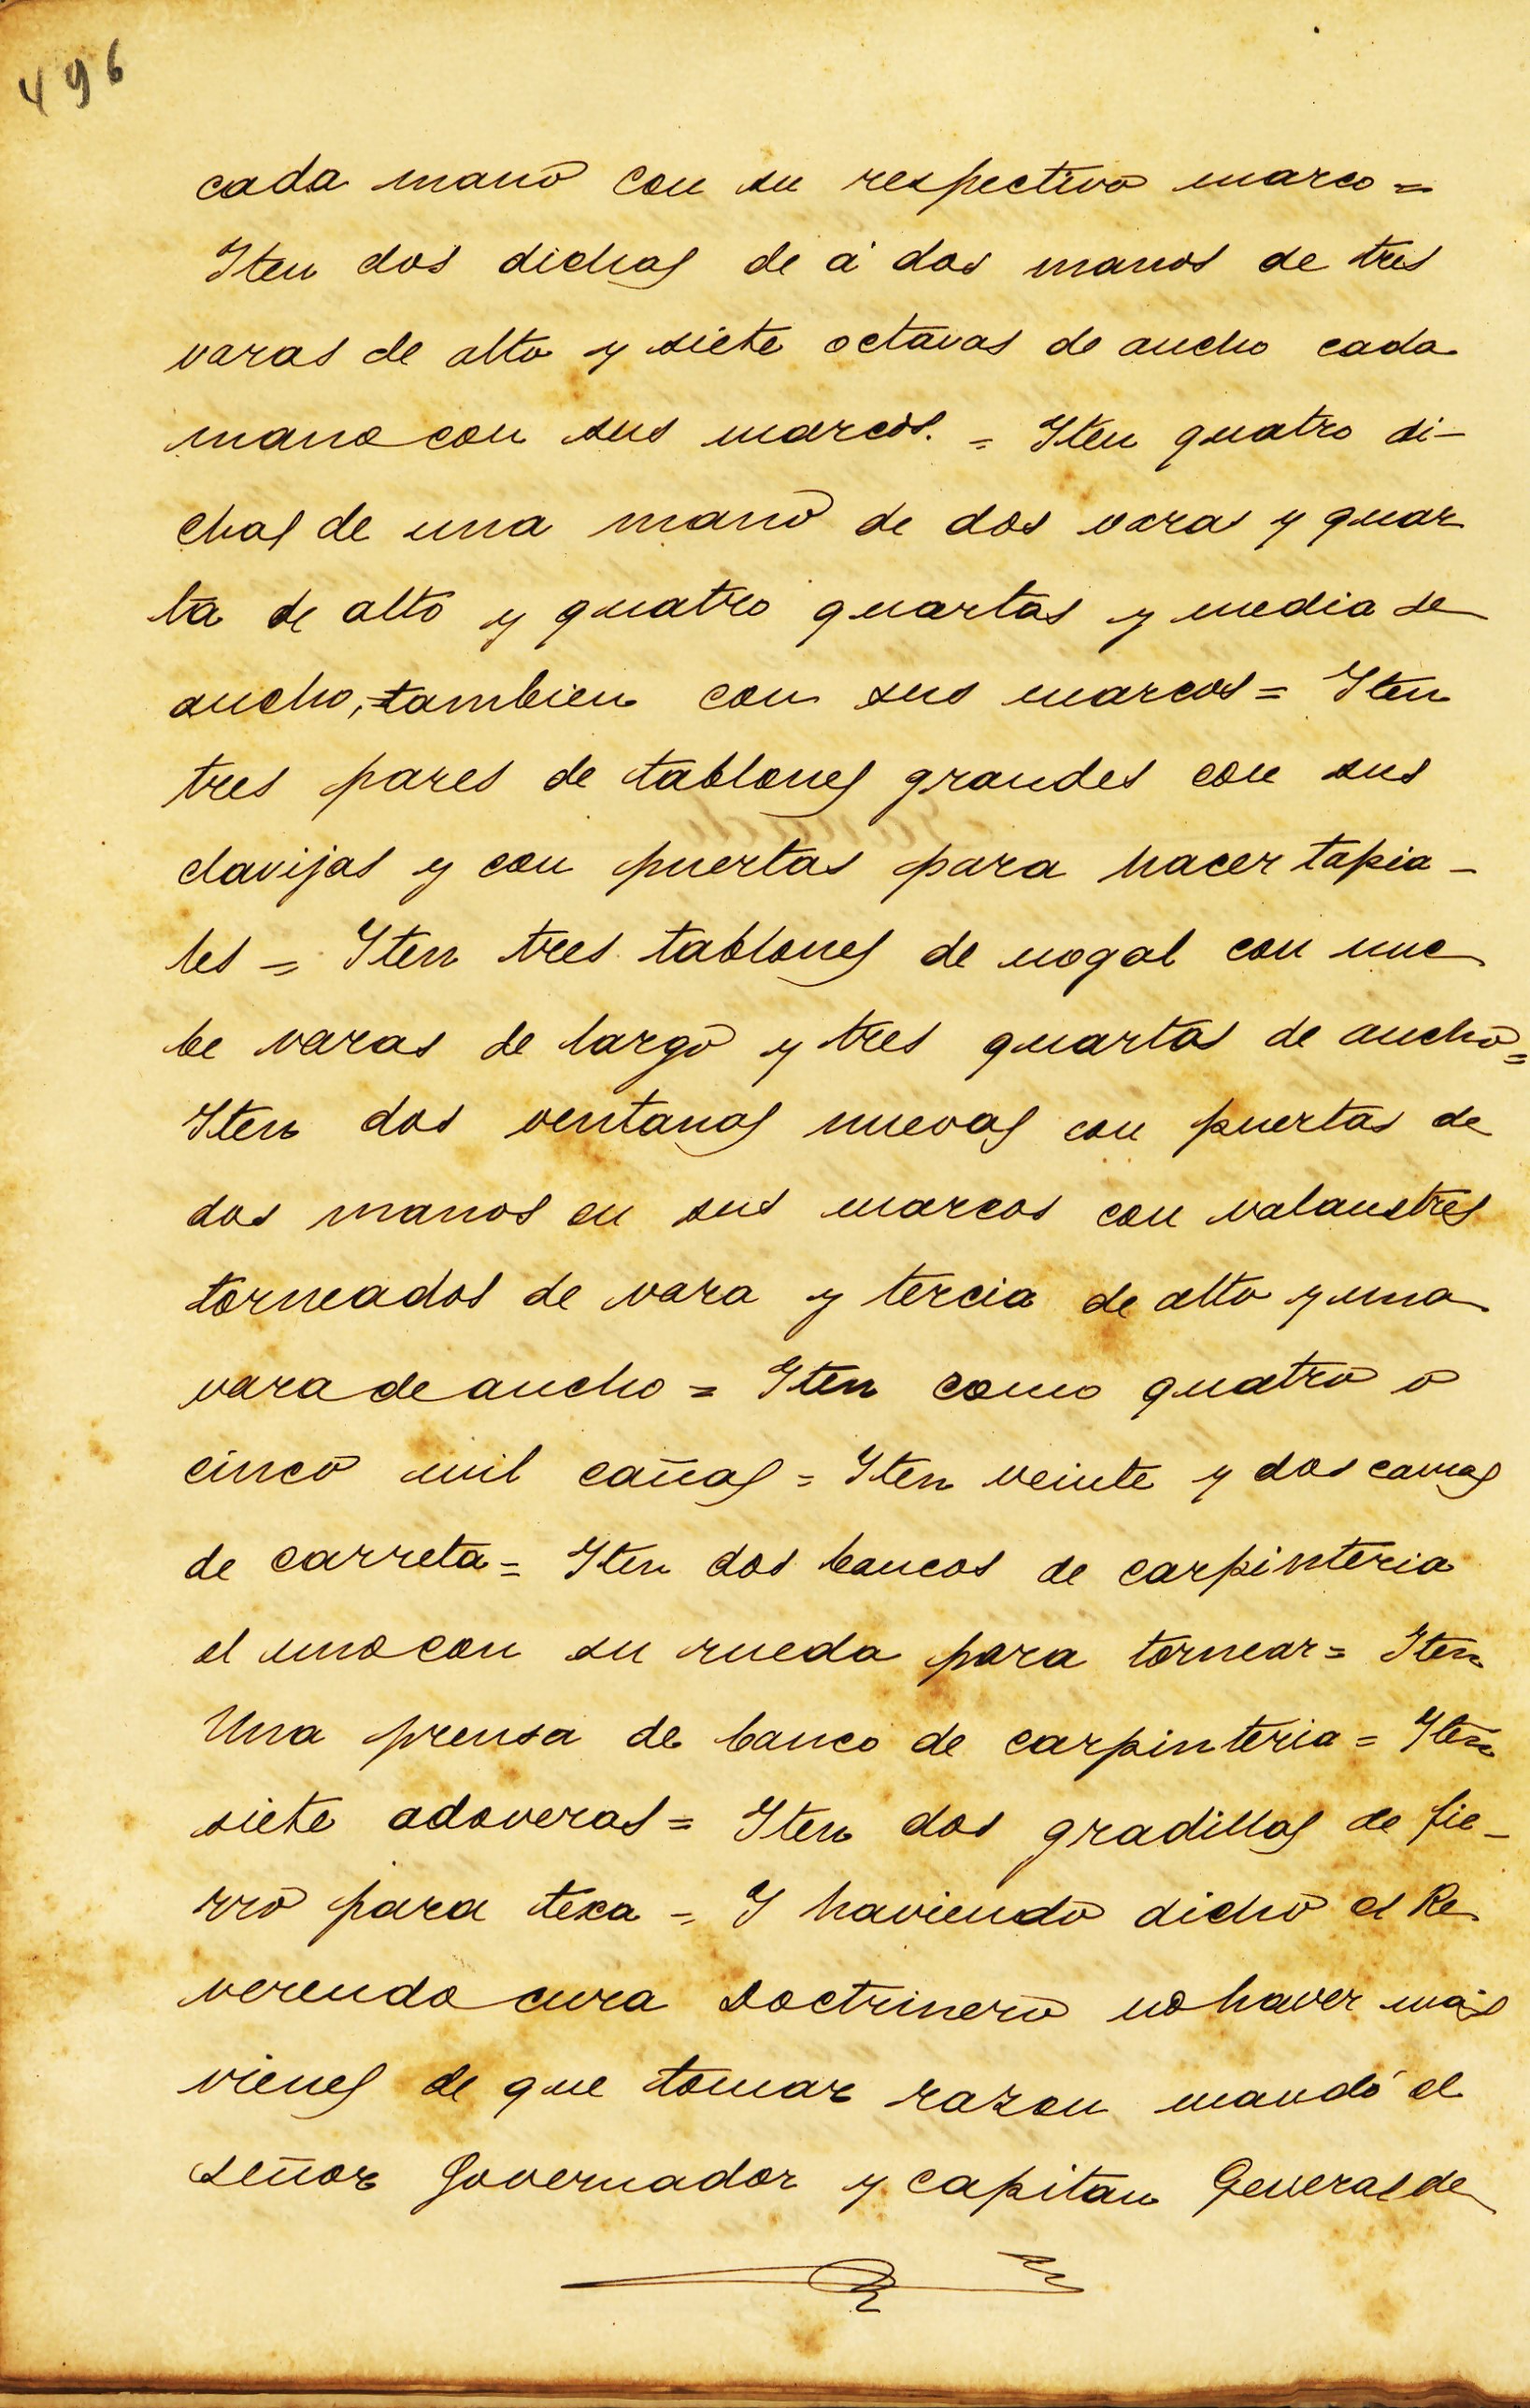 496
cada mano con su respectivo marco =
Iten dos dichas de á dos manos de tres
varas de alto y siete octavas de ancho cada
mano con sus marcos. = Iten quatro di-
chas de una mano de dos varas y quar
ta de alto y quatro quartas y media de
ancho, tambien con sus marcos = Iten
tres pares de tablones grandes con sus
clavijas y con puertas para hacer tapia-
les = Iten tres tablones de nogal con nue
be varas de largo y tres quartas de ancho =
Iten dos ventanas nuevas con puertas de
dos manos en sus marcos con valaustres
torneados de vara y tercia de alto y una
vara de ancho = Iten como quatro o
cinco mil cañas = Iten veinte y dos camas
de carreta = Iten dos bancos de carpinteria
el uno con su rueda para tornear = Iten
Una prensa de banco de carpinteria = Iten
siete adoveras = Iten dos gradillas de fie-
rro para texa = Y haviendo dicho el Re
verendo cura Doctrinero no haver más
vienes de que tomar razon mandó el
señor Governador y capitan General de